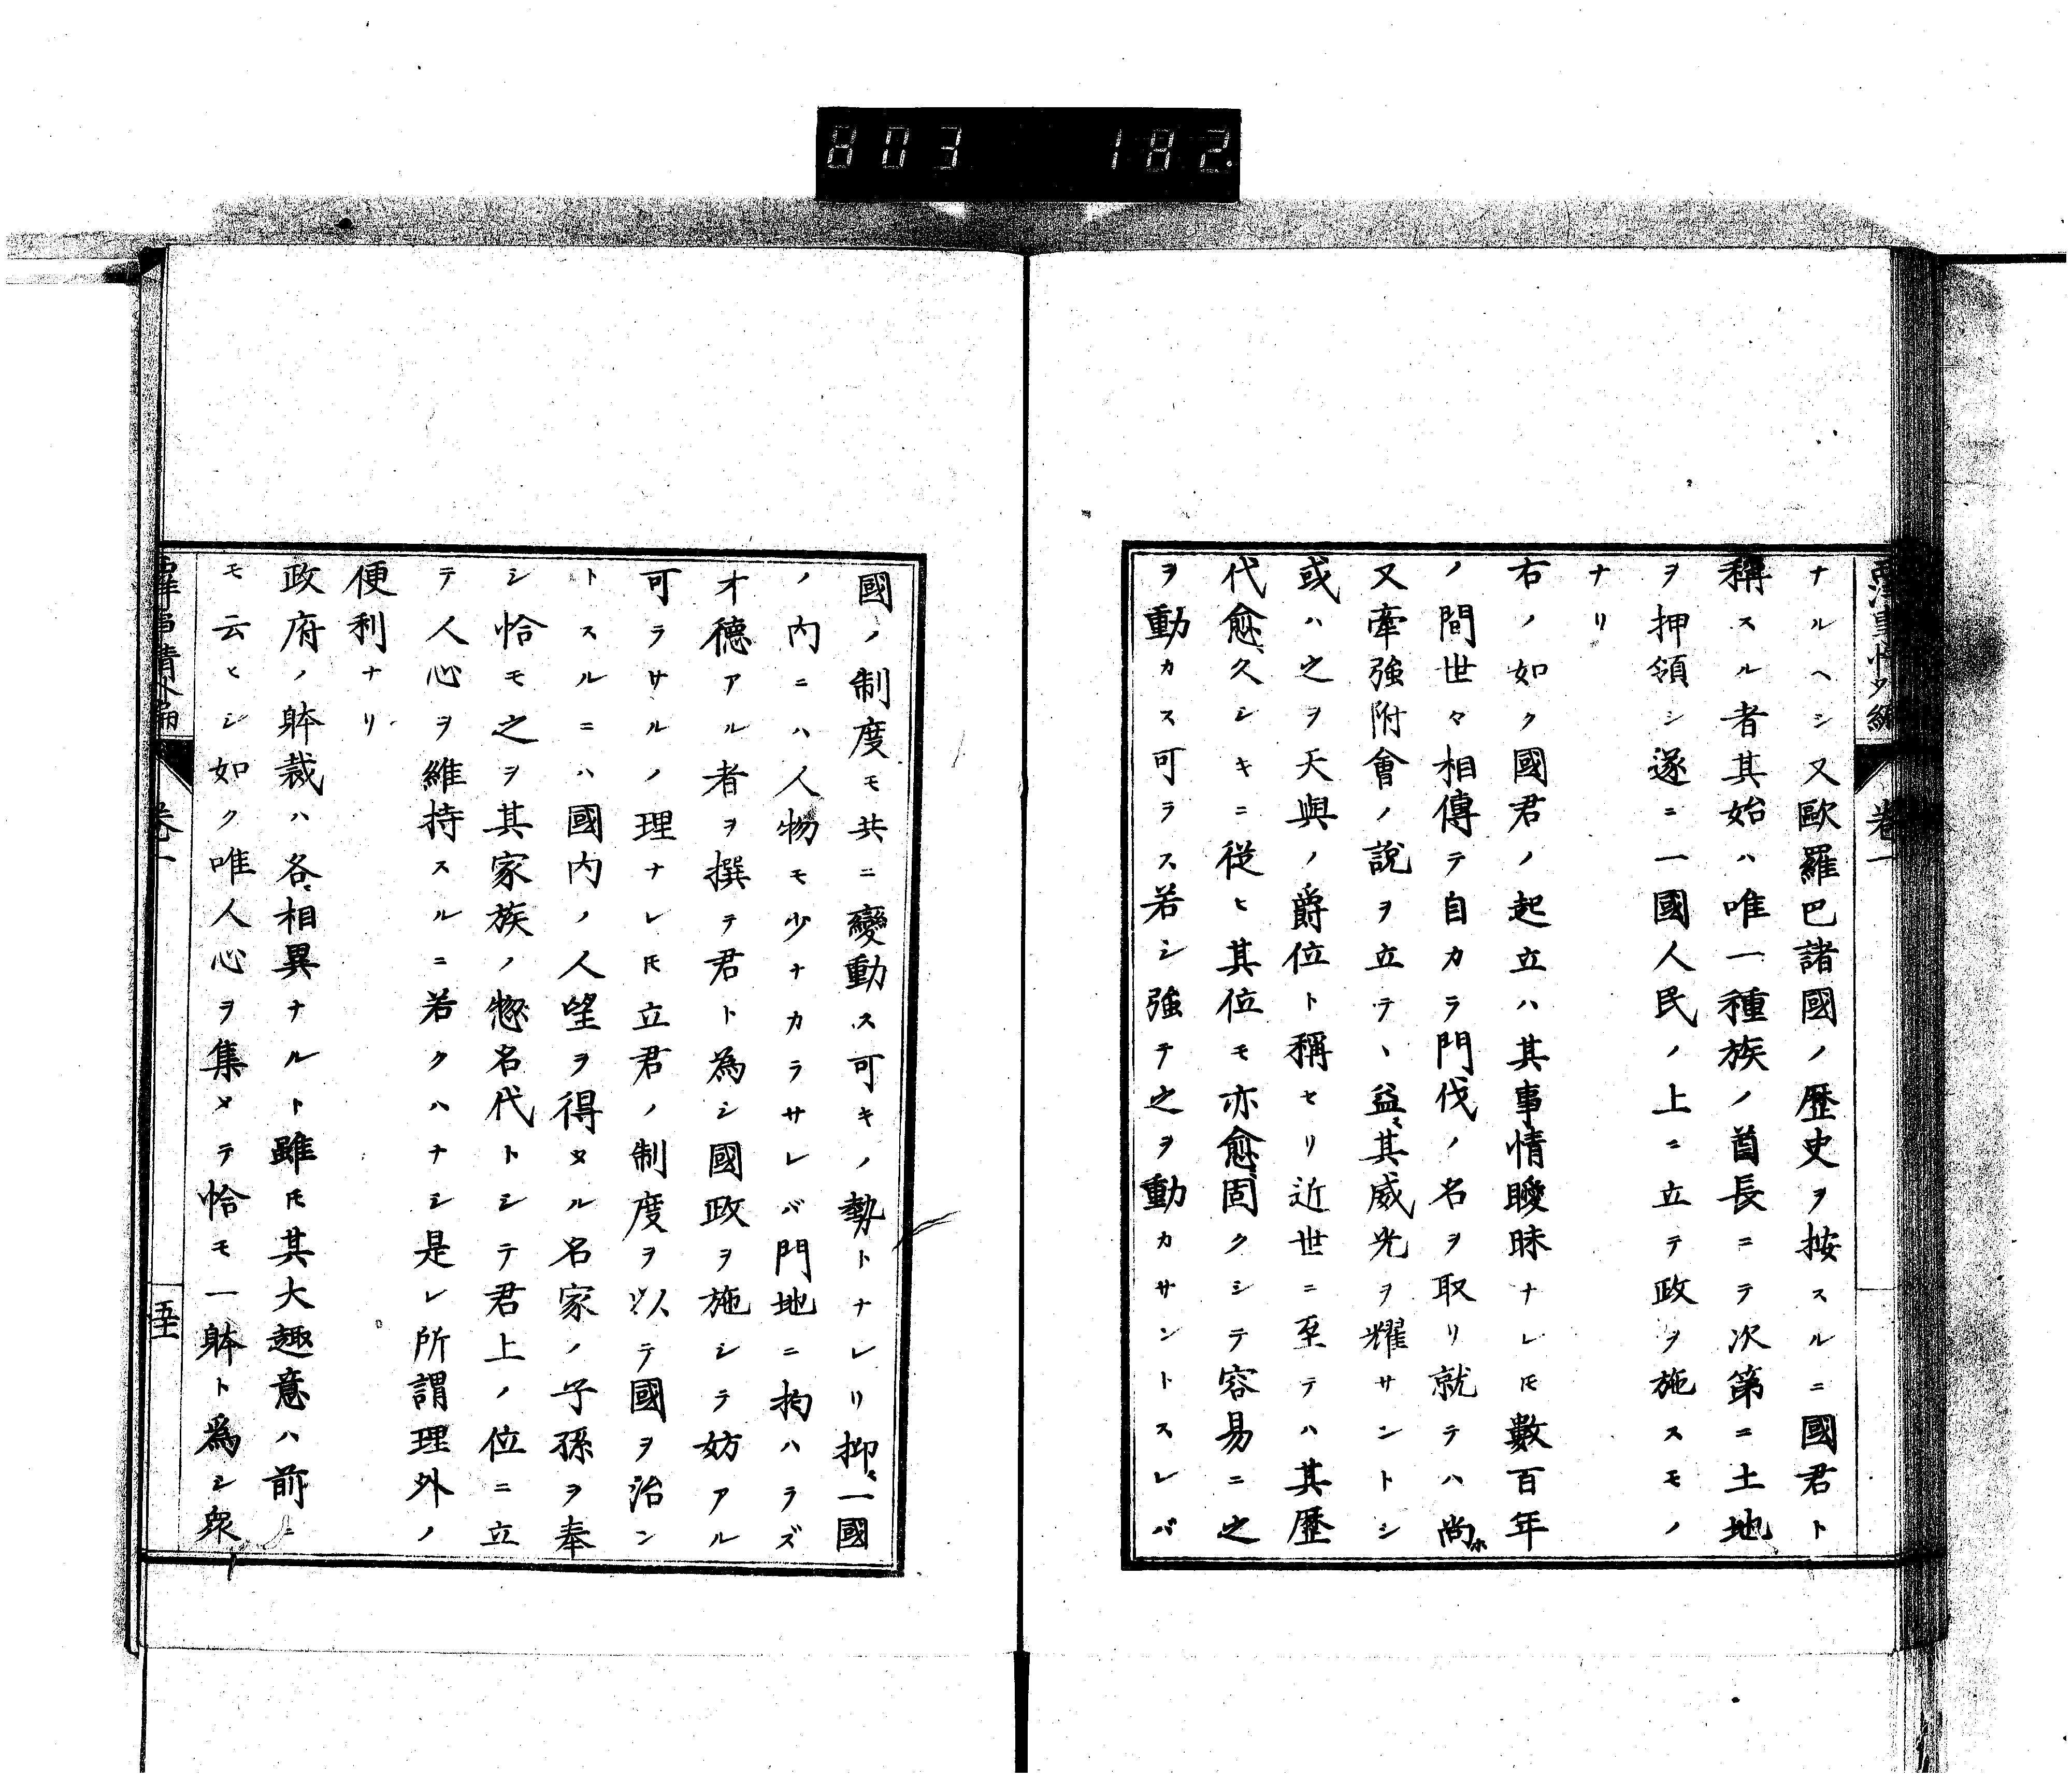 803 182
西洋事情外編 卷一
ナルヘシ又歐羅巴諸國ノ歷史ヲ按スルニ國君ト
稱スル者其始ハ唯一種族ノ酋長ニテ次第ニ土地
ヲ押領シ遂ニ一國人民ノ上ニ立テ政ヲ施スモノ
ナリ
右ノ如ク國君ノ起立ハ其事情曖昧ナレ𪜈數百年
ノ間世々相傳テ自カラ門伐ノ名ヲ取リ就テハ尚ホ
又牽強附會ノ說ヲ立テヽ益〻其威光ヲ耀サントシ
或ハ之ヲ天與ノ爵位ト稱セリ近世ニ至テハ其歷
代愈〻久シキニ從ヒ其位モ亦愈〻固クシテ容易ニ之
ヲ動カス可ラス若シ強テ之ヲ動カサントスレバ
國ノ制度モ共ニ變動ス可キノ勢トナレリ抑〻一國
ノ內ニハ人物モ少ナカラサレバ門地ニ拘ハラズ
才德アル者ヲ撰テ君ト為シ國政ヲ施シテ妨アル
可ラサルノ理ナレ𪜈立君ノ制度ヲ以テ國ヲ治ン
トスルニハ國内ノ人望ヲ得タル名家ノ子孫ヲ奉
シ恰モ之ヲ其家族ノ惣名代トシテ君上ノ位ニ立
テ人心ヲ維持スルニ若クハナシ是レ所謂理外ノ
便利ナリ
政府ノ躰裁ハ各〻相異ナルト雖𪜈其大趣意ハ前ニ
モ云ヒシ如ク唯人心ヲ集メテ恰モ一躰ト爲シ衆
西洋事情外編 卷一 五